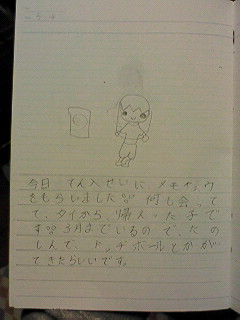 今日、てん入せいに、メモちょウ
をもらいました。何も会って
て、タイから、帰、った子で
す。3月までいるので、たの
しんで、ドッチボールとかが
できたらいいです。